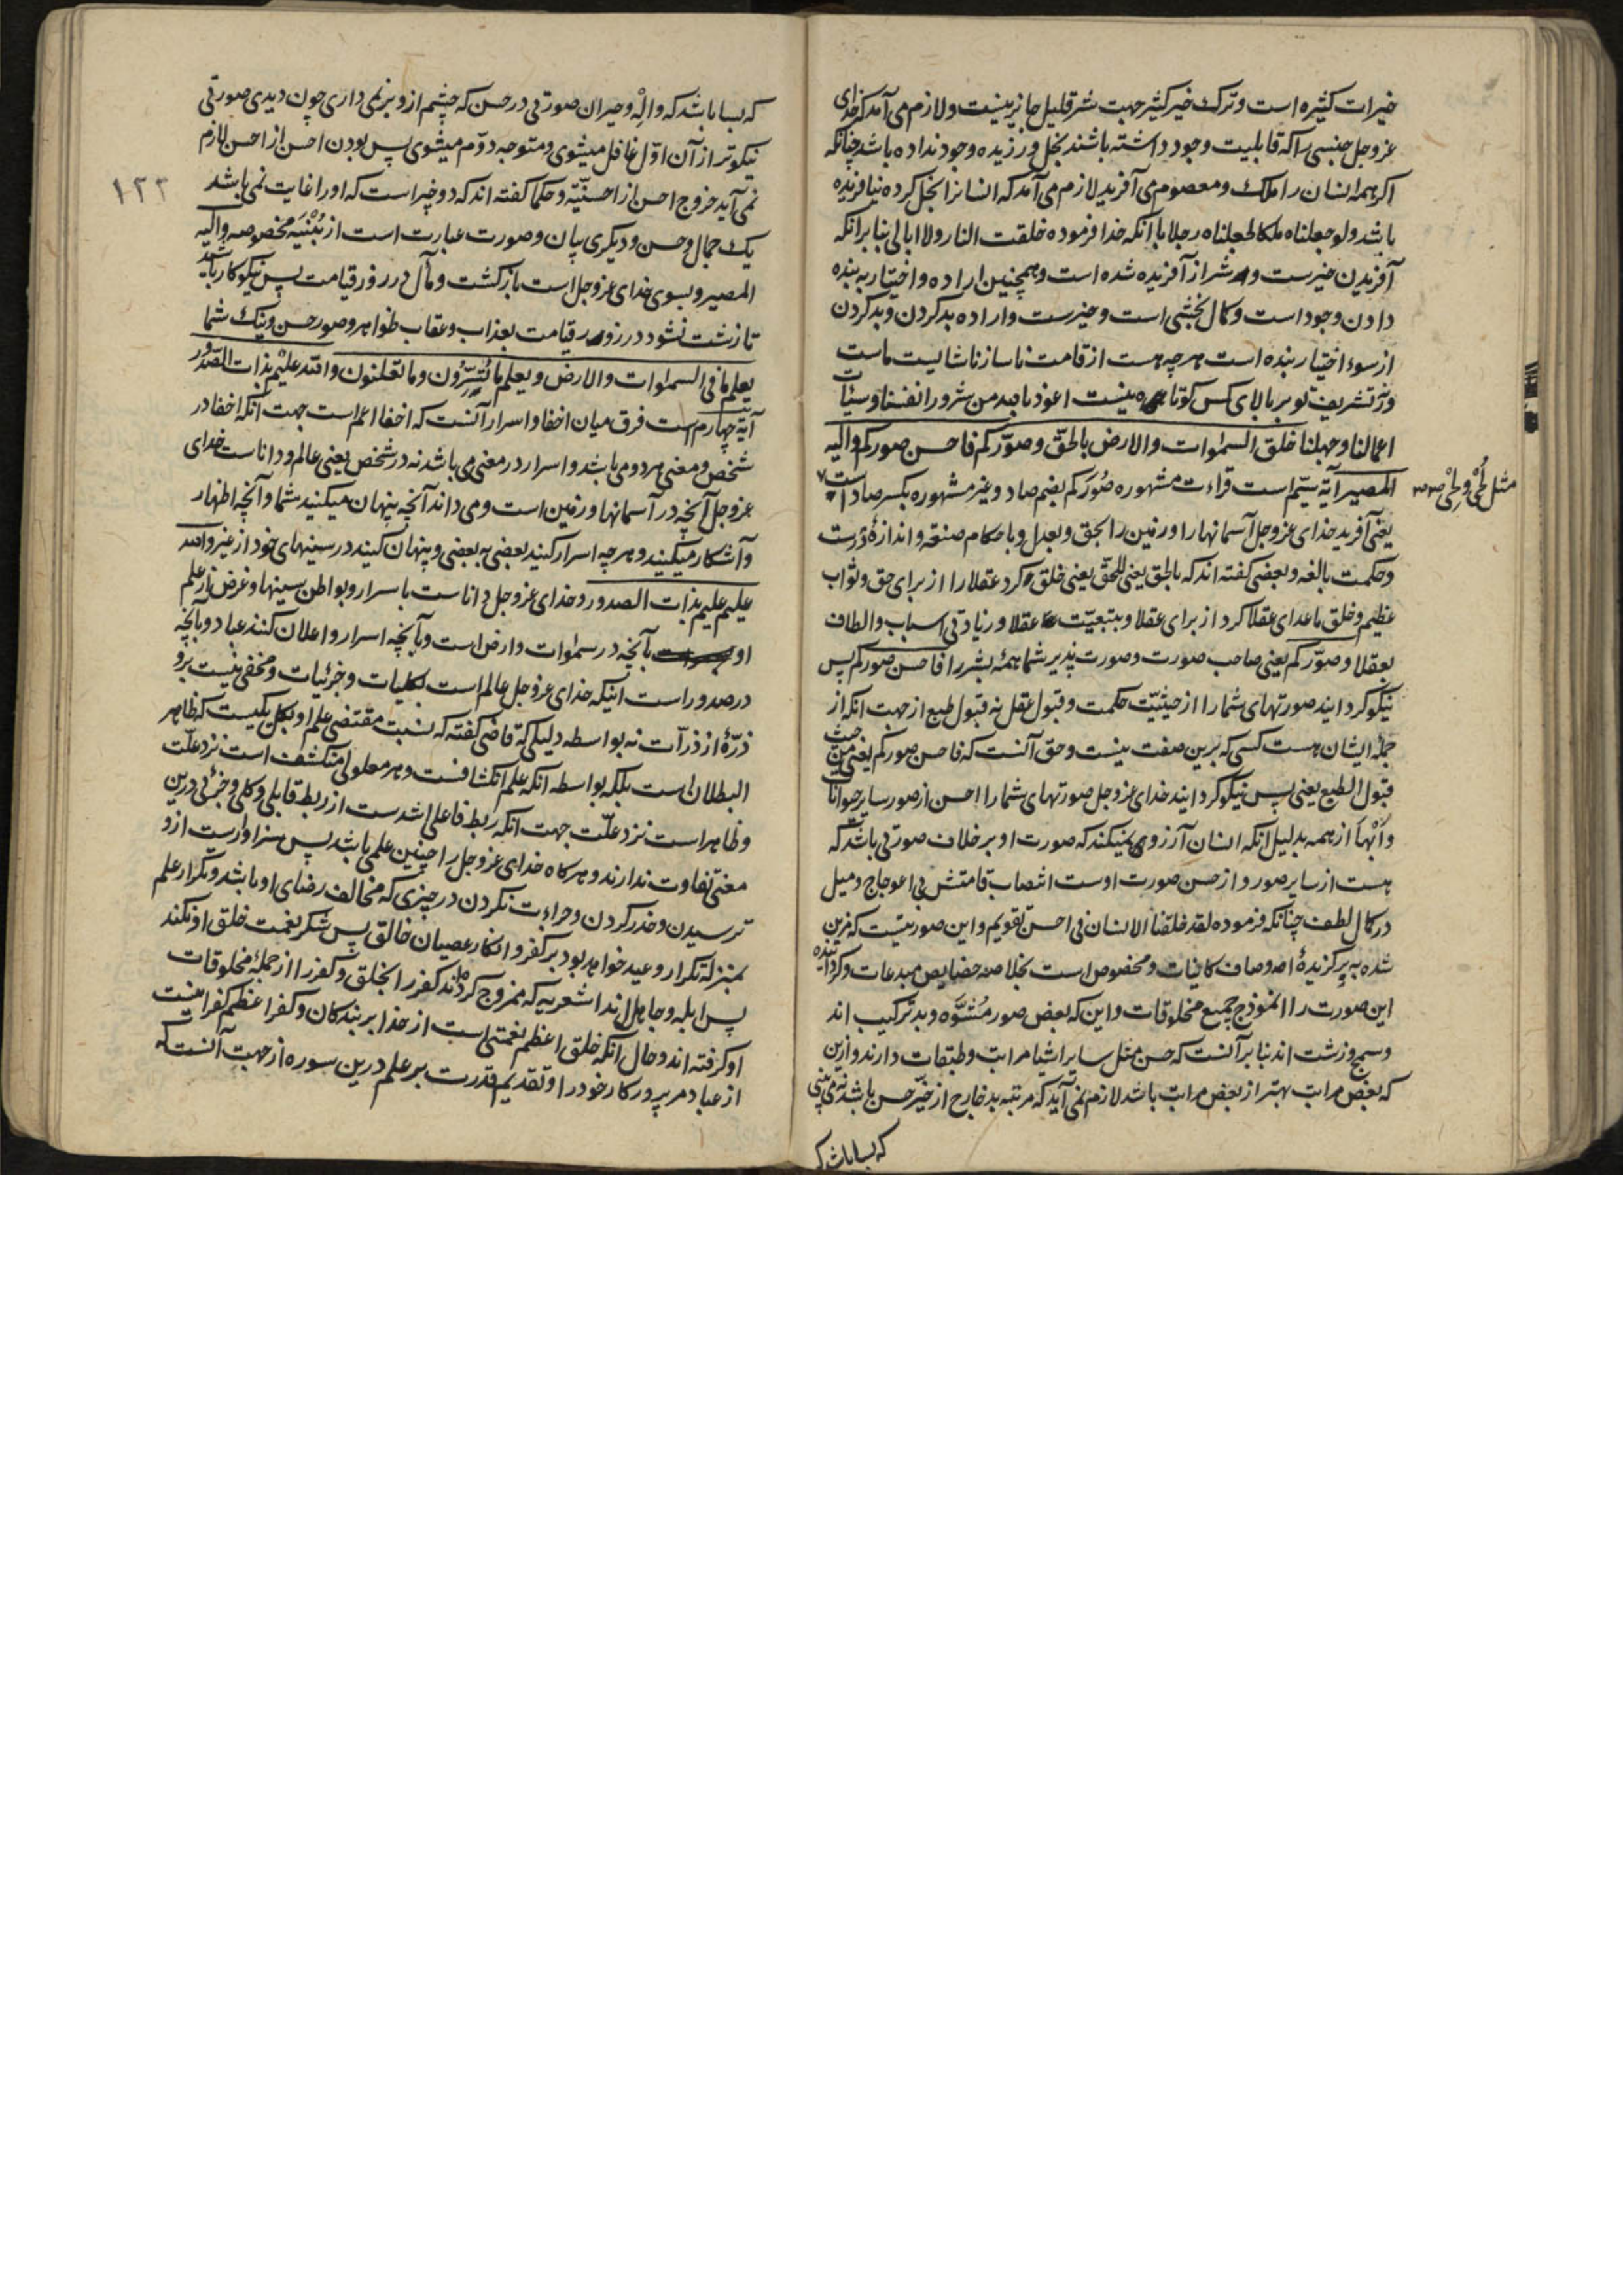 خیرات کثیره است و ترک خیر کثیر جهت شر قلیل جایز نیست و لازم می آمد که خدای
عزوجل جنسی را که قابلیت وجود داشته باشند بخل ورزیده وجود نداده باشد چنانکه
اگر همه انسان را ملک و معصوم می آفرید لازم می آمد که انسانرا بخل کرده نیافریده
باشد ولو جعلناه ملکا لجعلناه رجلا با آنکه خدا فرموده خلقت النار ولا ابالی بنا برانکه
آفریدن خیرست و شر از آفریده شده است و همچنین اراده و اختیار به بنده
دادن وجود است و کمال بخشی است و خیرست و اراده بد کردن و بد کردن
از سوء اختیار بنده است هر چه هست از قامت ناساز ناشایست ماست
ورنه تشریف تو بر بالای کس کوتاه نیست اعوذ بالله من شرور انفسنا و سیئات
اعمالنا و جهلنا خلق السموات والارض بالحق و صوّرکم فاحسن صورکم والیه
المصیر آیه سیّم است قراءت مشهوره صُوَرَکم بضم صاد و غیر مشهوره بکسر صاد است
مثل لُحی ولِحی
یعنی آفرید خدای عزوجل آسمانها را و زمین را بحق و بعدل و باحکام صنعه و اندازهٔ درست
و حکمت بالغه و بعضی گفته اند که بالحق یعنی للحقّ یعنی خلق کرد عقلا را از برای حق و ثواب
عظیم و خلق ماعدای عقلا کرد از برای عقلا و بتبعیّت عقلا و زیادتی اسباب و الطاف
بعقلا و صوّرکم یعنی صاحب صورت و صورت پذیر شما همهٔ بشر را فاحسن صورکم پس
نیکو گردانید صورتهای شما را از حیثیّت حکمت و قبول عقل نه قبول طبع از جهت انکه از
جملهٔ ایشان هست کسی که برین صفت نیست و حق آنست که فاحسن صورکم یعنی من حیث
قبول الطبع یعنی پس نیکو گردانید خدای عزوجل صورتهای شما را احسن از صور سایر حیوانات
و ابهٰا از همه بدلیل انکه انسان آرزوی نمیکند که صورت او بر خلاف صورتی باشد که
هست از سایر صور و از حسن صورت اوست انتصاب قامتش بی اعوجاج و میل
در کمال لطف چنانکه فرموده لقد خلقنا الانسان فی احسن تقویم و این صورتیست که مزین
شده به برگزیدهٔ اوصاف کاینات و مخصوص است بخلاصه خصایص مبدعات و گردانیده
این صورت را انموذج جمیع مخلوقات و این که بعض صور مُشَوَّه و بد ترکیب اند
و سمج و زشت اند بنا بر آنست که حسن مثل سایر اشیا مراتب و طبقات دارند و ازین
که بعض مراتب بهتر از بعض مراتب باشد لازم نمی آید که مرتبه بد خارج از حیّز حسن باشد نمی بینی
که بسا باشد که
۱۲۲
که بسا باشد که والِه و حیران صورتی در حسن که چشم ازو بر نمی داری چون دیدی صورتی
نیکوتر از آن اوّل غافل میشوی و متوجه دوّم میشوی پس بودن احسن از احسن لازم
نمی آید خروج احسن از احسنیّه و حکما گفته اند که دو چیز است که او را غایت نمی باشد
یک جمال و حسن و دیگری بیان و صورت عبارت است از بُنْیَه مخصوصه والیه
المصیر و بسوی خدای عزوجل است بازگشت و مآل در روز قیامت پس نیکوکار باشید
تا زشت نشود در روز قیامت بعذاب و عقاب ظواهر و صور حسن و نیک شما
یعلم ما فی السموات والارض و یعلم ما تُسِرّون و ما تعلنون والله علیم بذات الصّدُور
آیهٔ چهارم است فرق میان اخفا و اسرار آنست که اخفا اعم است جهت آنکه اخفا در
شخص و معنی هر دو می باشد و اسرار در معنی می باشد نه در شخص یعنی عالم و داناست خدای
عزوجل آنچه در آسمانها و زمین است و می داند آنچه پنهان میکنید شما و آنچه اظهار
و آشکار میکنید و هر چه اسرار کنید بعضی به بعضی و پنهان کنید در سینهای خود از غیر والله
علیم علیم بذات الصدور و خدای عزوجل داناست باسرار و بواطن سینها و غرض از علم
او بآنچه در سموات و ارض است و بآنچه اسرار و اعلان کنند عباد و بآنچه
در صدور است اینکه خدای عزوجل عالم است بکلیات و جزئیات و مخفی نیست برو
ذرّهٔ از ذرّات نه بواسطه دلیلی که قاضی گفته که نسبت مقتضی علم او بکل یکیست که ظاهر
البطلان است بلکه بواسطه آنکه علم انکشافست و هر معلولی منکشف است نزد علّت
و ظاهر است نزد علّت جهت آنکه ربط فاعلی اشدست از ربط قابلی و کلی و جزئی درین
معنی تفاوت ندارند و هرگاه خدای عزوجل را چنین علمی باشد پس سزاوارست ازو
ترسیدن و حذر کردن و جراءت نکردن در چیزی که مخالف رضای او باشد و تکرار علم
بمنزله تکرار وعید خواهد بود بر کفر و انکار عصیان خالق پس شکر نعمت خلق او نکند
پس ابله و جاهل اند اشعریه که ممزوج کرده اند کفر را بخلق و کفر را از جملهٔ مخلوقات
او گرفته اند و حال آنکه خلق اعظم نعمتی است از خدا بر بندگان و کفر اعظم کفرانیست
از عباد مر پروردگار خود را و تقدیم قدرت بر علم درین سوره از جهت آنست که